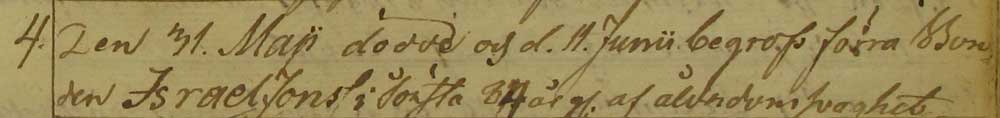 4. Den 31. Maji dödde och d. 11. Junii begrofs förra Bon-
den Israel Jonss. i Tofta 84 år g. af ålderdomsvaghet